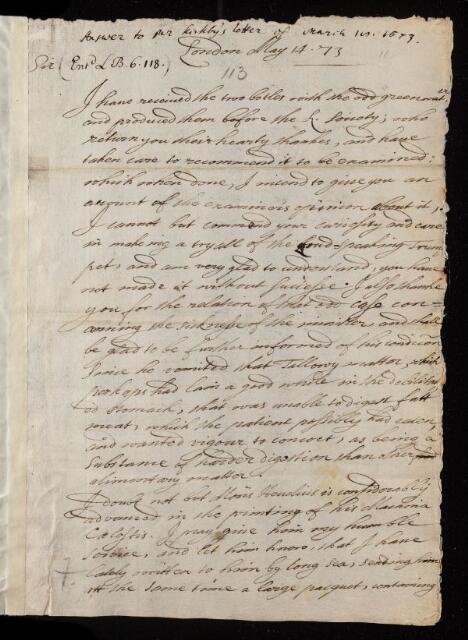 Answer to Mr Kirkby's letter of March 1st. 1673.
London May 14. 73
Sir (Entd L B. 6. 118.)
113
I have received the two botles with the odd green water
and produced them before the R. Society, who
return you their hearty thankes, and have
taken care to recommend it to be examined:
which when done, I intend to give you an
account of the examiners opinion about it,
I cannot but commend your curiosity and care
in making a tryall of the loud-speaking Trum
pet, and am very glad to understand, you have
not made it without successe. I also thanke
you for the relation of that case con-
cerning the sicknesse of the and shall
be glad to be further informed of his condition
since he vomited that Tallowy matter, which
perhaps had lain a good while in the debilitat
ed stomach, that was unable to digest fatt
meat, which the patient possibly had eaten,
and wanted vigour to concoct, as being a
substance of harder digestion than other
alimentary matter.
I doubt not but Mons. Hevelius is considerably
advanced in the printing of his Machina
Cœlestis. I pray, give him my humble
service, and let him know, that I have
lately written to him by long sea, sending him
at the same time a large pacquet, containing